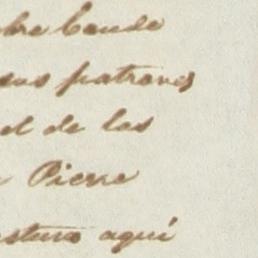 bre Conde
sus patrones
el de las
Pierre
estuvo aquí